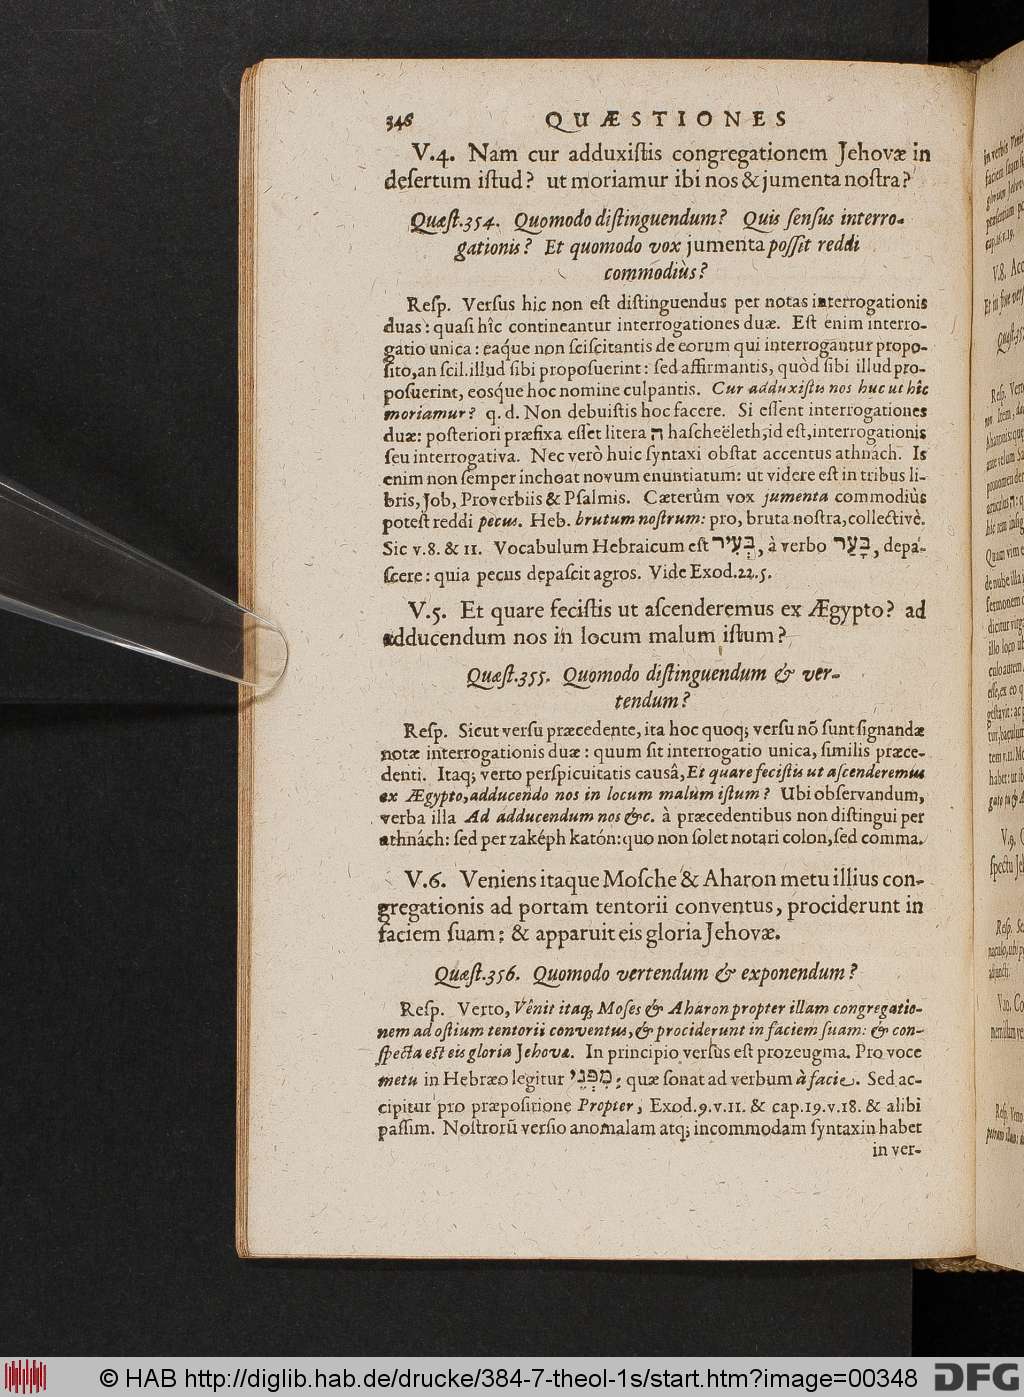 346 QUÆSTIONES
V.4. Nam cur adduxiſtis congregationem Jehovæ in
deſertum iſtud? ut moriamur ibi nos & jumenta noſtra?
Quæſt.354. Quomodo diſtinguendum? Quis ſenſus interro-
gationis? Et quomodo vox jumenta poſſit reddi
commodiùs?
Reſp. Verſus hic non eſt diſtinguendus per notas interrogationis
duas: quaſi hîc contineantur interrogationes duæ. Eſt enim interro-
gatio unica: eaq́ue non ſciſcitantis de eorum qui interrogantur propo-
ſito, an ſcil. illud ſibi propoſuerint: ſed affirmantis, quòd ſibi illud pro-
poſuerint, eosq́ue hoc nomine culpantis. Cur adduxiſtis nos huc ut hîc
moriamur? q. d. Non debuiſtis hoc facere. Si eſſent interrogationes
duæ: poſteriori præfixa eſſet litera ה haſcheëleth, id eſt, interrogationis
ſeu interrogativa. Nec verò huic ſyntaxi obſtat accentus athnách. Is
enim non ſemper inchoat novum enuntiatum: ut videre eſt in tribus li-
bris, Job, Proverbiis & Pſalmis. Cæterùm vox jumenta commodiùs
poteſt reddi pecus. Heb. brutum noſtrum: pro, bruta noſtra, collectivè.
Sic v.8. & 11. Vocabulum Hebraicum eſt בְּעִיר, à verbo בָּעַר, depa-
ſcere: quia pecus depaſcit agros. Vide Exod.22.5.
V.5. Et quare feciſtis ut aſcenderemus ex Ægypto? ad
adducendum nos in locum malum iſtum?
Quæſt.355. Quomodo diſtinguendum & ver-
tendum?
Reſp. Sicut verſu præcedente, ita hoc quoq; verſu nō ſunt ſignandæ
notæ interrogationis duæ: quum ſit interrogatio unica, ſimilis præce-
denti. Itaq; verto perſpicuitatis causâ, Et quare feciſtis ut aſcenderemus
ex Ægypto, adducendo nos in locum malum iſtum? Ubi obſervandum,
verba illa Ad adducendum nos &c. à præcedentibus non diſtingui per
athnách: ſed per zaképh katón: quo non ſolet notari colon, ſed comma.
V.6. Veniens itaque Moſche & Aharon metu illius con-
gregationis ad portam tentorii conventus, prociderunt in
faciem ſuam: & apparuit eis gloria Jehovæ.
Quæſt.356. Quomodo vertendum & exponendum?
Reſp. Verto, Vênit itaq; Moſes & Aharon propter illam congregatio-
nem ad oſtium tentorii conventus, & prociderunt in faciem ſuam: & con-
ſpecta eſt eis gloria Jehovæ. In principio verſus eſt prozeugma. Pro voce
metu in Hebræo legitur מִפְּנֵי: quæ ſonat ad verbum à facie. Sed ac-
cipitur pro præpoſitione Propter, Exod.9.v.11. & cap.19.v.18. & alibi
paſſim. Noſtrorū verſio anomalam atq; incommodam ſyntaxin habet
in ver-
© HAB http://diglib.hab.de/drucke/384-7-theol-1s/start.htm?image=00348
DFG